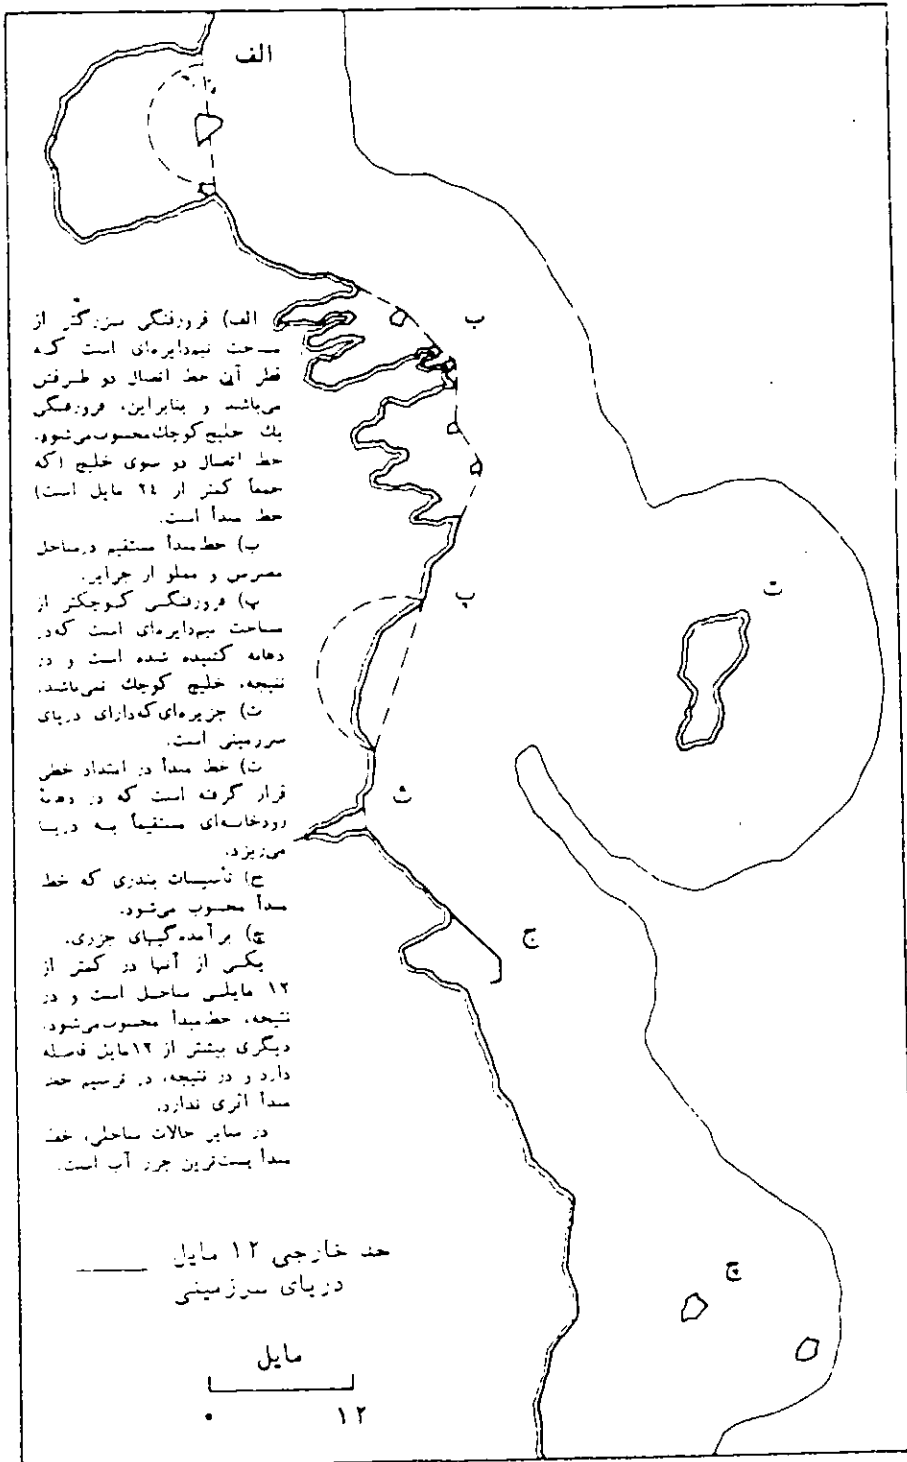 الف
الف) فرورفتگی بزرگتر از
مساحت نیم‌دایره‌ای است که
قطر آن خط اتصال دو طرفش
می‌باشد و بنابراین، فرورفتگی
یك خلیج کوچك محسوب می‌شود.
خط اتصال دو سوی خلیج (که
جمعاً کمتر از ۲۴ مایل است)
خط مبدأ است.
ب) خط مبدأ مستقیم در ساحل
مضرس و مملو از جزایر.
پ) فرورفتگی کوچکتر از
مساحت نیم‌دایره‌ای است که در
دهانه کشیده شده است و در
نتیجه، خلیج کوچك نمی‌باشد.
ت) جزیره‌ای که دارای دریای
سرزمینی است.
ث) خط مبدأ در امتداد خطی
قرار گرفته است که در دهانهٔ
رودخانه‌ای مستقیماً به دریا
می‌ریزد.
ج) تأسیسات بندری که خط
مبدأ محسوب می‌شود.
چ) برآمدگیهای جزری.
یکی از آنها در کمتر از
۱۲ مایلی ساحل است و در
نتیجه، خط مبدأ محسوب می‌شود.
دیگری بیشتر از ۱۲ مایل فاصله
دارد و در نتیجه، در ترسیم خط
مبدأ اثری ندارد.
در سایر حالات ساحلی، خط
مبدأ پست‌ترین جزر آب است.
ب
پ
ت
ث
ج
چ
حد خارجی ۱۲ مایل
دریای سرزمینی
مایل
۰ ۱۲